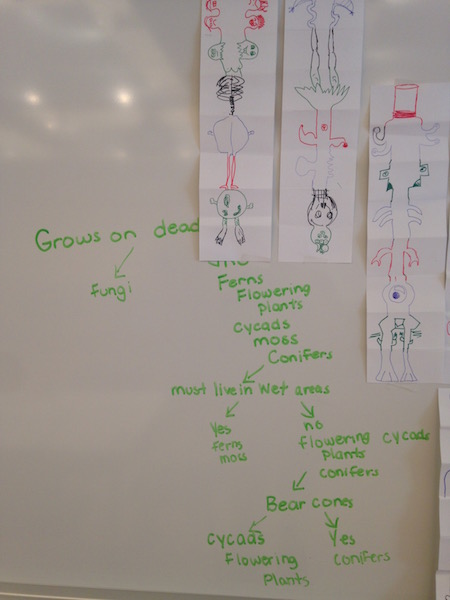 Grows on dead
fungi
Ferns
Flowering
plants
cycads
moss
Conifers
must live in wet areas
Yes
ferns
moss
no
flowering cycads
plants
conifers
Bear cones
cycads
Flowering
Plants
Yes
conifers